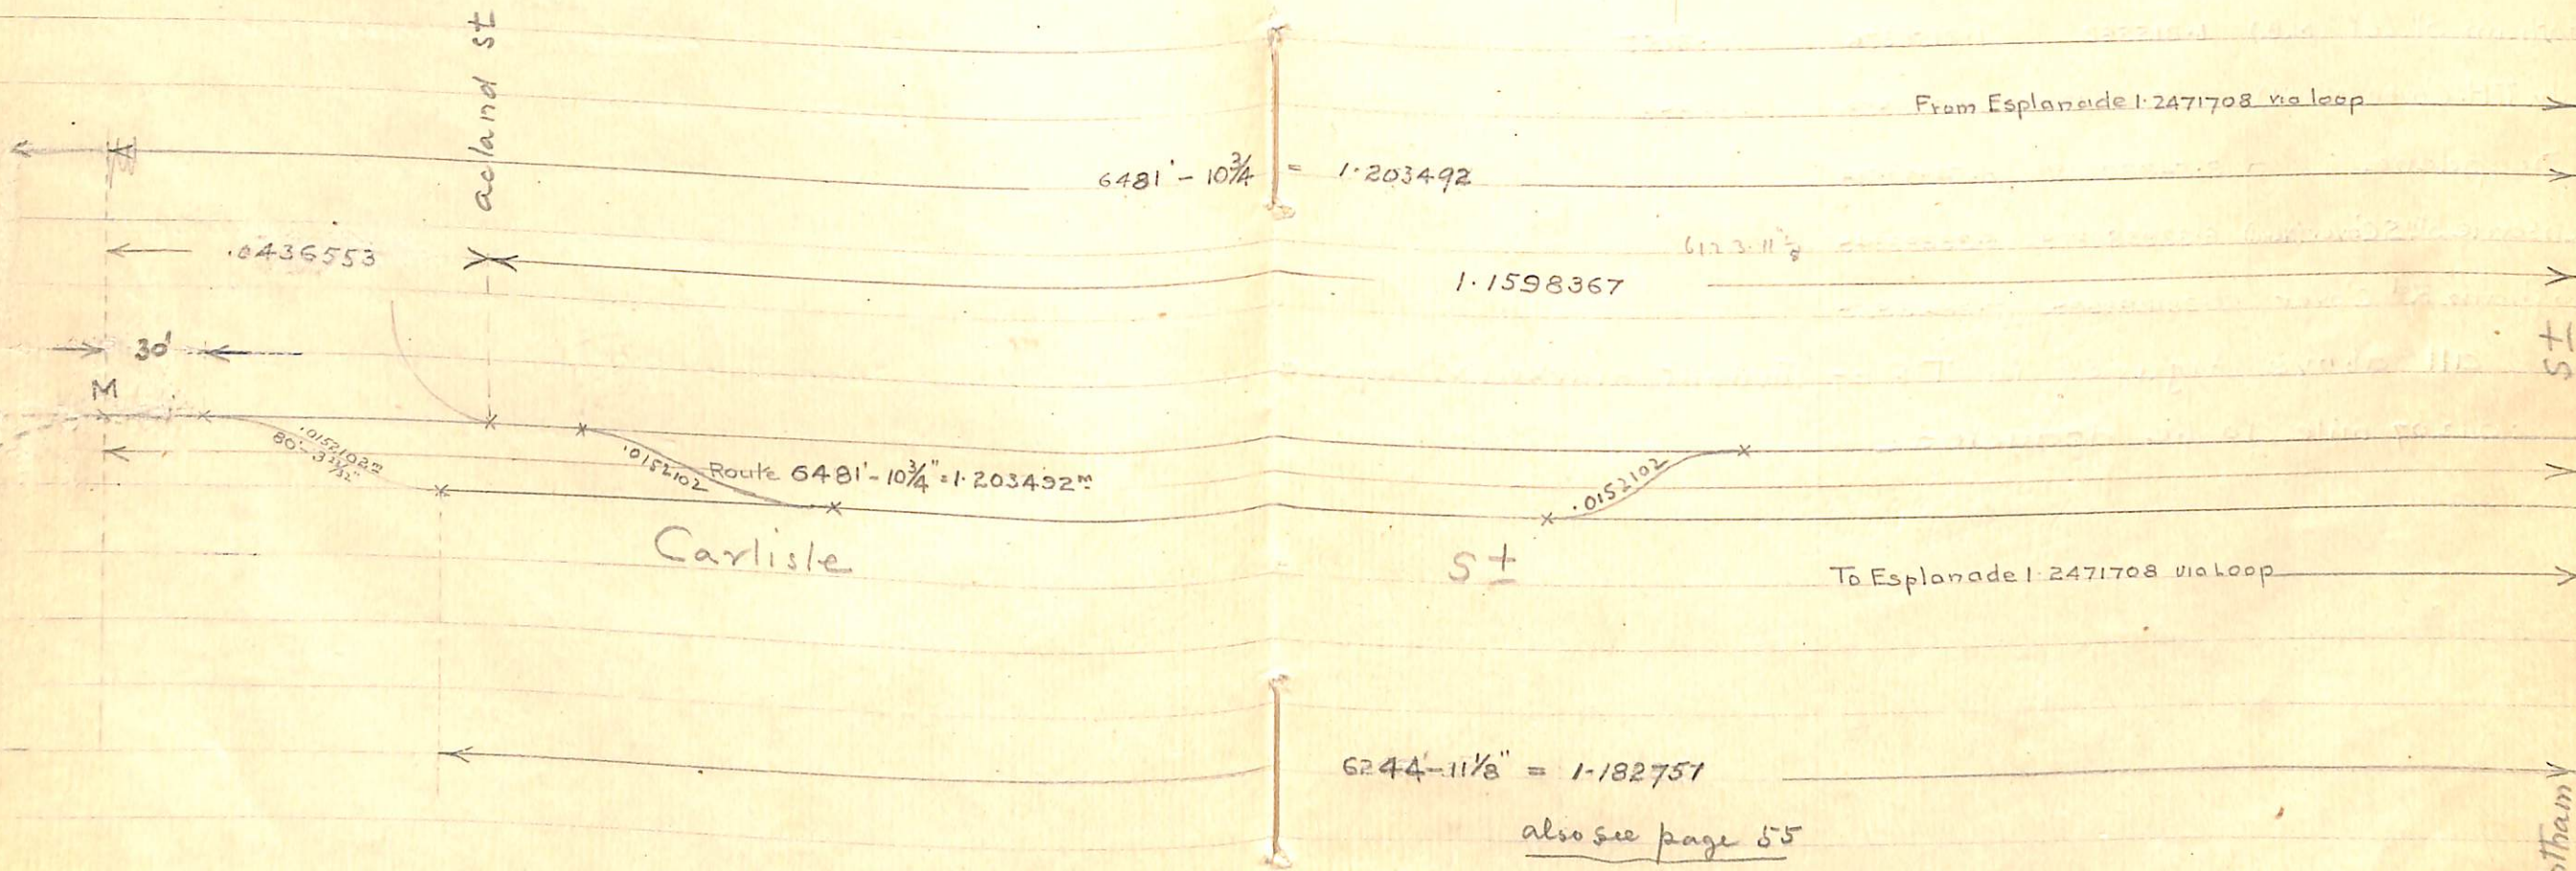 acland st
From Esplanade 1.2471708 via loop
6481' - 10¾ = 1.203492
.0436553
6123.11⅛
1.1598367
30'
M
.0152102m
80'-3 23/32"
.0152102
Route 6481'-10¾" = 1.203492m
.0152102
St
Carlisle
St
To Esplanade 1.2471708 via Loop
6244'-11⅛" = 1.182757
also see page 55
otham